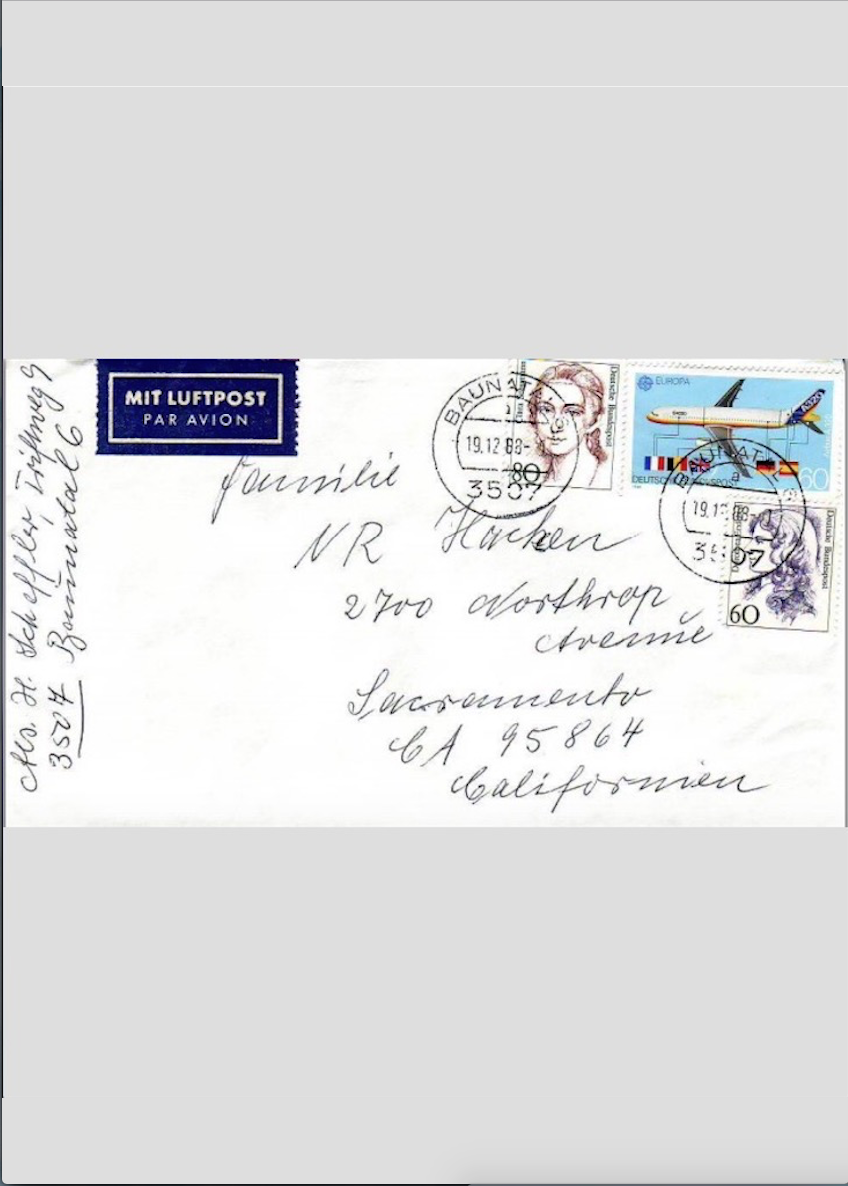 MIT LUFTPOST
PAR AVION
BAUNATAL
19.12.88-
3507
80
Deutsche Bundespost
EUROPA
A320
DEUTSCHE BUNDESPOST
60
BAUNATAL
19.12.88-
3507
Deutsche Bundespost
60
Familie
NR Hacken
2700 Northrop
Avenue
Sacramento
CA 95864
Californien
H. Scheffler,
3507 Baunatal 6